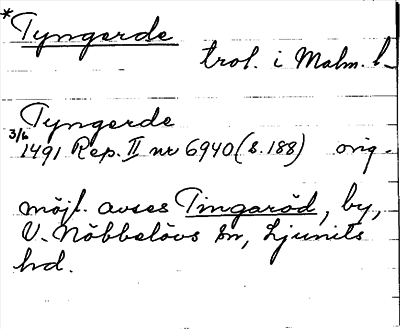 *Tyngerde
trol. i Malm. l.
Tyngerde
3/6 1491 Rep. II nr 6940 (s. 188) orig.
möjl. avses Tingaröd, by,
V. Nöbbelövs sn, Ljunits
hd.